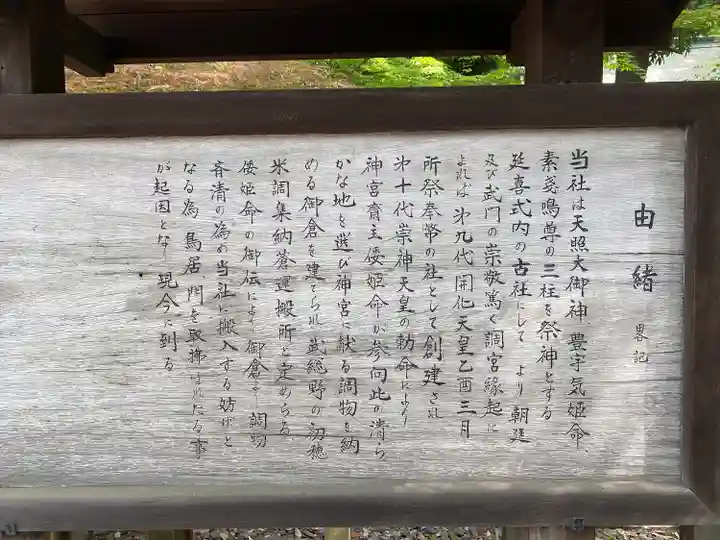 由緒 畧記
当社は天照大御神、豊宇気姫命、
素戔嗚尊の三柱を祭神とする
延喜式内の古社にして より朝廷
及び武門の崇敬篤く調宮縁起に
よれば 㐧九代開化天皇乙酉三月
所祭奉幣の社として創建され
㐧十代崇神天皇の勅命により
神宮斎主倭姫命が参向此の清ら
かな地を選び神宮に献る調物を納
める御倉を建てられ 武総野の初穂
米調集納蒼運搬所と定めらる
倭姫命の御伝により御倉より調物
斉清の為め当社に搬入する妨げと
なる為 鳥居、門を取拂はれたる事
が起因となり現今に到る